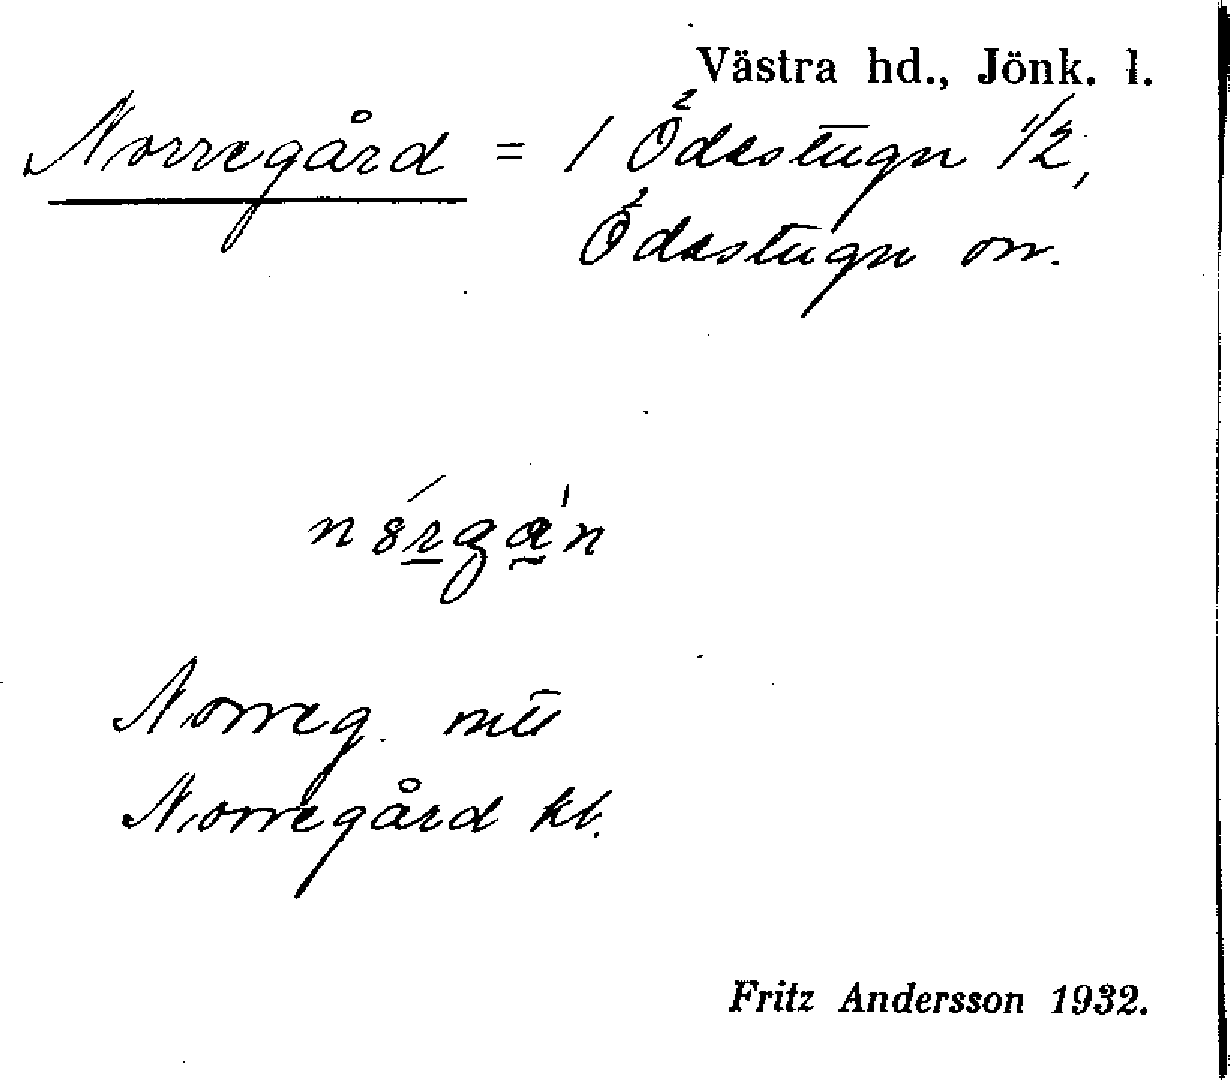 Västra hd., Jönk. l.
Norregård = 1 Ödestugu 1/2,
Ödestugu sn.
Norreg. mtl
Norregård kb.
Fritz Andersson 1932.